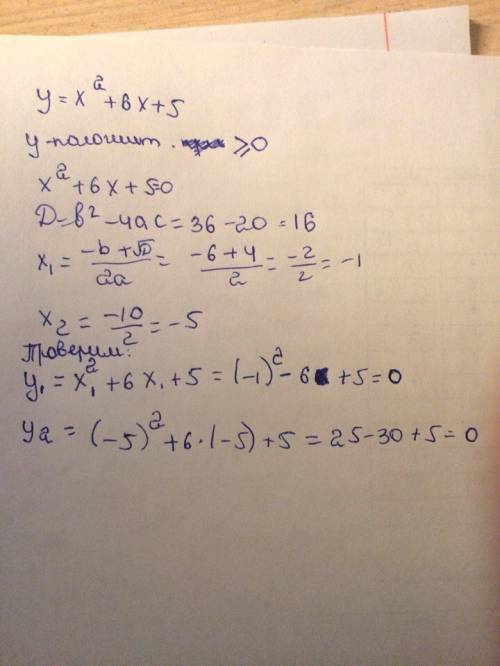 y = x² + 6x + 5
y - положит. ≥ 0
x² + 6x + 5 = 0
D = b² - 4ac = 36 - 20 = 16
x₁ = (-b + √D)/2a = (-6 + 4)/2 = -2/2 = -1
x₂ = -10/2 = -5
Проверим:
y₁ = x₁² + 6x₁ + 5 = (-1)² - 6 + 5 = 0
y₂ = (-5)² + 6·(-5) + 5 = 25 - 30 + 5 = 0